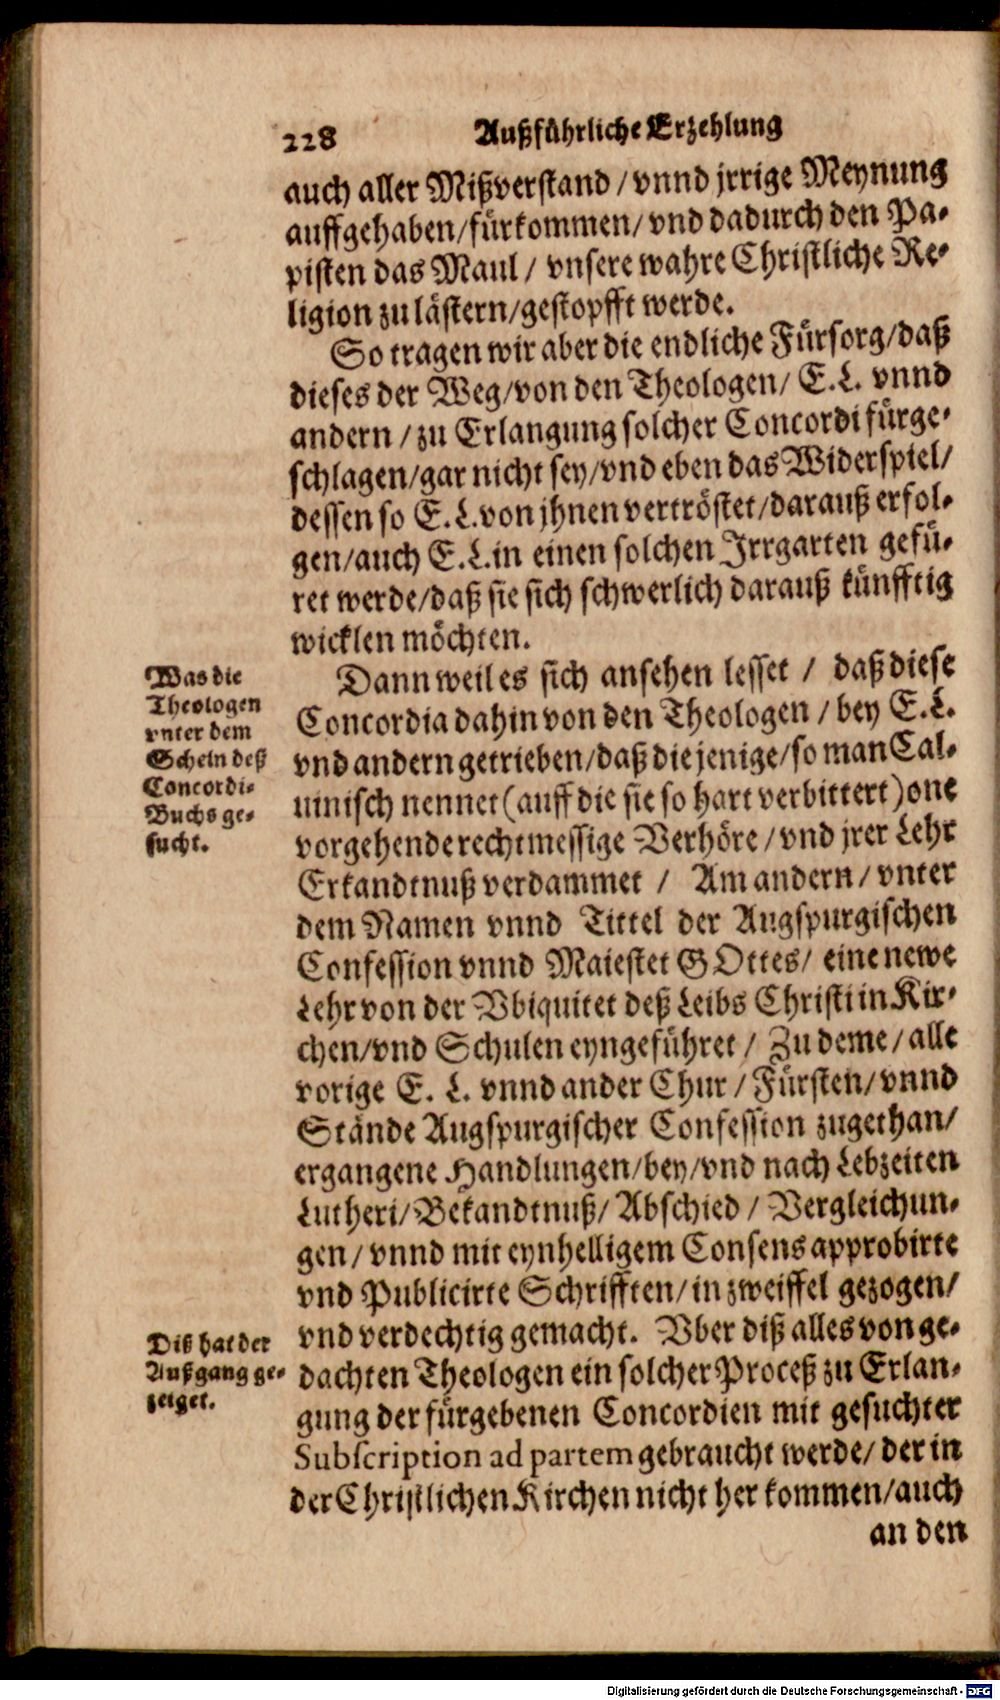 228 Außführliche Erzehlung
auch aller Mißverstand / vnnd jrrige Meynung
auffgehaben/fürkommen/ vnd dadurch den Pa-
pisten das Maul / vnsere wahre Christliche Re-
ligion zu lästern/gestopfft werde.
So tragen wir aber die endliche Fürsorg/daß
dieses der Weg/von den Theologen/ E.L. vnnd
andern / zu Erlangung solcher Concordi fürge-
schlagen/gar nicht sey/vnd eben das Widerspiel/
dessen so E.L.von jhnen vertröstet/darauß erfol-
gen/auch E.L.in einen solchen Irrgarten gefü-
ret werde/daß sie sich schwerlich darauß künfftig
wicklen möchten.
Was die
Theologen
vnter dem
Schein deß
Concordi-
Buchs ge-
sucht.
Dann weil es sich ansehen lesset / daß diese
Concordia dahin von den Theologen / bey E.L.
vnd andern getrieben/daß die jenige/so man Cal-
uinisch nennet(auff die sie so hart verbittert)one
vorgehende rechtmessige Verhöre / vnd jrer Lehr
Erkandtnuß verdammet / Am andern / vnter
dem Namen vnnd Tittel der Augspurgischen
Confession vnnd Maiestet GOttes/ eine newe
Lehr von der Vbiquitet deß Leibs Christi in Kir-
chen/vnd Schulen eyngeführet / Zu deme / alle
vorige E. L. vnnd ander Chur / Fürsten/ vnnd
Stände Augspurgischer Confession zugethan/
ergangene Handlungen/bey/vnd nach Lebzeiten
Lutheri/ Bekandtnuß/ Abschied / Vergleichun-
gen / vnnd mit eynhelligem Consens approbirte
vnd Publicirte Schrifften/ in zweiffel gezogen/
vnd verdechtig gemacht. Vber diß alles von ge-
Diß hat der
Außgang ge-
zeiget.
dachten Theologen ein solcher Proceß zu Erlan-
gung der fürgebenen Concordien mit gesuchter
Subscription ad partem gebraucht werde/ der in
der Christlichen Kirchen nicht her kommen/auch
an den
Digitalisierung gefördert durch die Deutsche Forschungsgemeinschaft - DFG